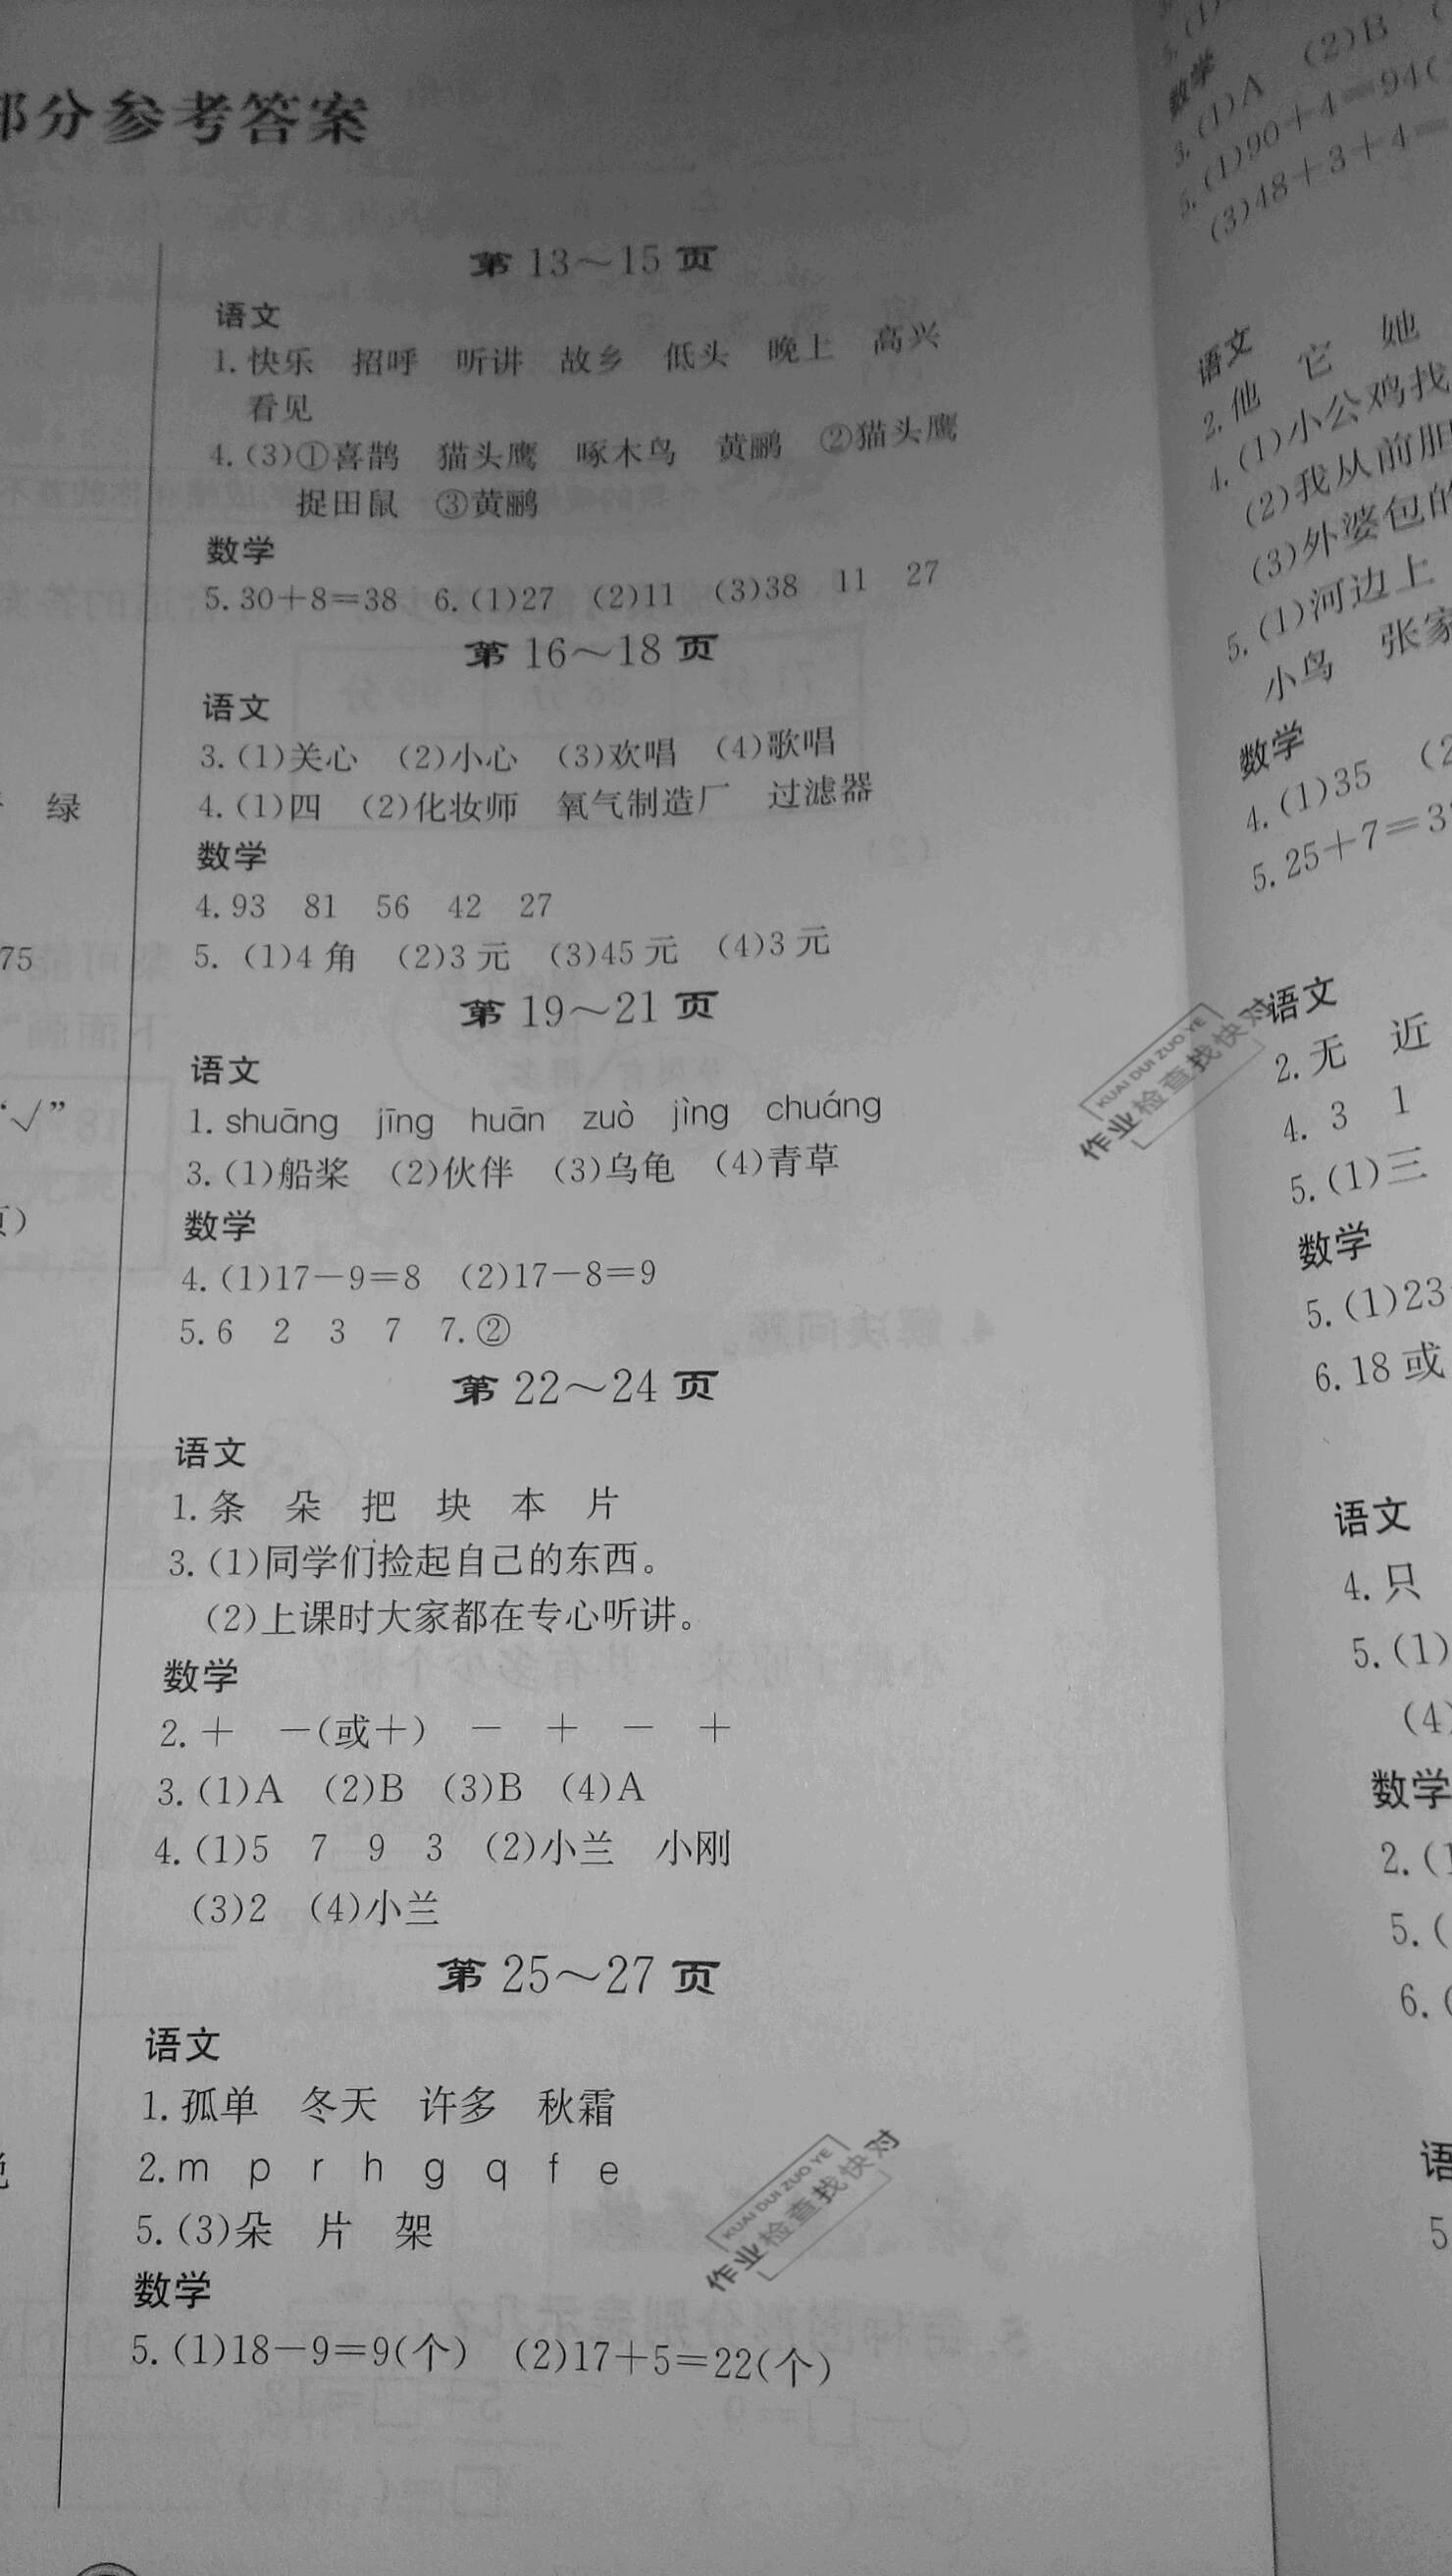 部分参考答案
绿
75
“√”
页)
第13～15页
语文
1.快乐 招呼 听讲 故乡 低头 晚上 高兴
看见
4.(3)①喜鹊 猫头鹰 啄木鸟 黄鹂 ②猫头鹰
捉田鼠 ③黄鹂
数学
5.30+8=38 6.(1)27 (2)11 (3)38 11 27
第16～18页
语文
3.(1)关心 (2)小心 (3)欢唱 (4)歌唱
4.(1)四 (2)化妆师 氧气制造厂 过滤器
数学
4.93 81 56 42 27
5.(1)4角 (2)3元 (3)45元 (4)3元
第19～21页
语文
1.shuāng jīng huān zuò jìng chuáng
3.(1)船桨 (2)伙伴 (3)乌龟 (4)青草
数学
4.(1)17-9=8 (2)17-8=9
5.6 2 3 7 7.②
第22～24页
语文
1.条 朵 把 块 本 片
3.(1)同学们捡起自己的东西。
(2)上课时大家都在专心听讲。
数学
2.+ -(或+) - + - +
3.(1)A (2)B (3)B (4)A
4.(1)5 7 9 3 (2)小兰 小刚
(3)2 (4)小兰
第25～27页
语文
1.孤单 冬天 许多 秋霜
2.m p r h g q f e
5.(3)朵 片 架
数学
5.(1)18-9=9(个) (2)17+5=22(个)
数学
3.(1)A (2)B
5.(1)90+4=94(
(3)48+3+4=
语文
2.他 它 她
4.(1)小公鸡找
(2)我从前胆
(3)外婆包的
5.(1)河边上
小鸟 张家
数学
4.(1)35 (2
5.25+7=3
语文
2.无 近
4.3 1
5.(1)三
数学
5.(1)23
6.18或
语文
4.只
5.(1)
(4)
数学
2.(1
5.(
6.(
语
5
KUAI DUI ZUO YE
作业检查找快对
KUAI DUI ZUO YE
作业检查找快对